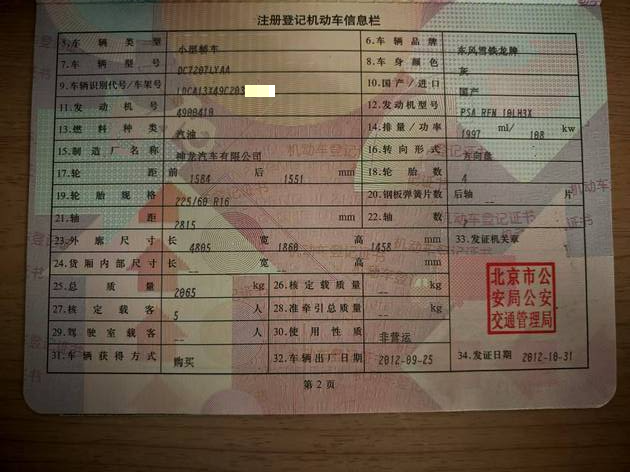 注册登记机动车信息栏
5.车辆类型 小型轿车 6.车辆品牌 东风雪铁龙牌
7.车辆型号 DC7207LYAA 8.车身颜色 灰
9.车辆识别代号/车架号 LDCA13X49C203 10.国产/进口 国产
11.发动机号 4900410 12.发动机型号 PSA RFN 10LH3X
13.燃料种类 汽油 14.排量/功率 1997 ml/ 108 kw
15.制造厂名称 神龙汽车有限公司 16.转向形式 方向盘
17.轮距 前 1584 后 1551 mm 18.轮胎数 4
19.轮胎规格 225/60 R16 20.钢板弹簧片数 后轴 -- 片
21.轴距 2815 mm 22.轴数 2
23.外廓尺寸 长 4805 宽 1860 高 1458 mm 33.发证机关章
24.货厢内部尺寸 长 -- 宽 -- 高 -- mm
25.总质量 2065 kg 26.核定载质量 -- kg
27.核定载客 5 人 28.准牵引总质量 -- kg
北京市公
安局公安
交通管理局
29.驾驶室载客 -- 人 30.使用性质 非营运
31.车辆获得方式 购买 32.车辆出厂日期 2012-09-25 34.发证日期 2012-10-31
第2页